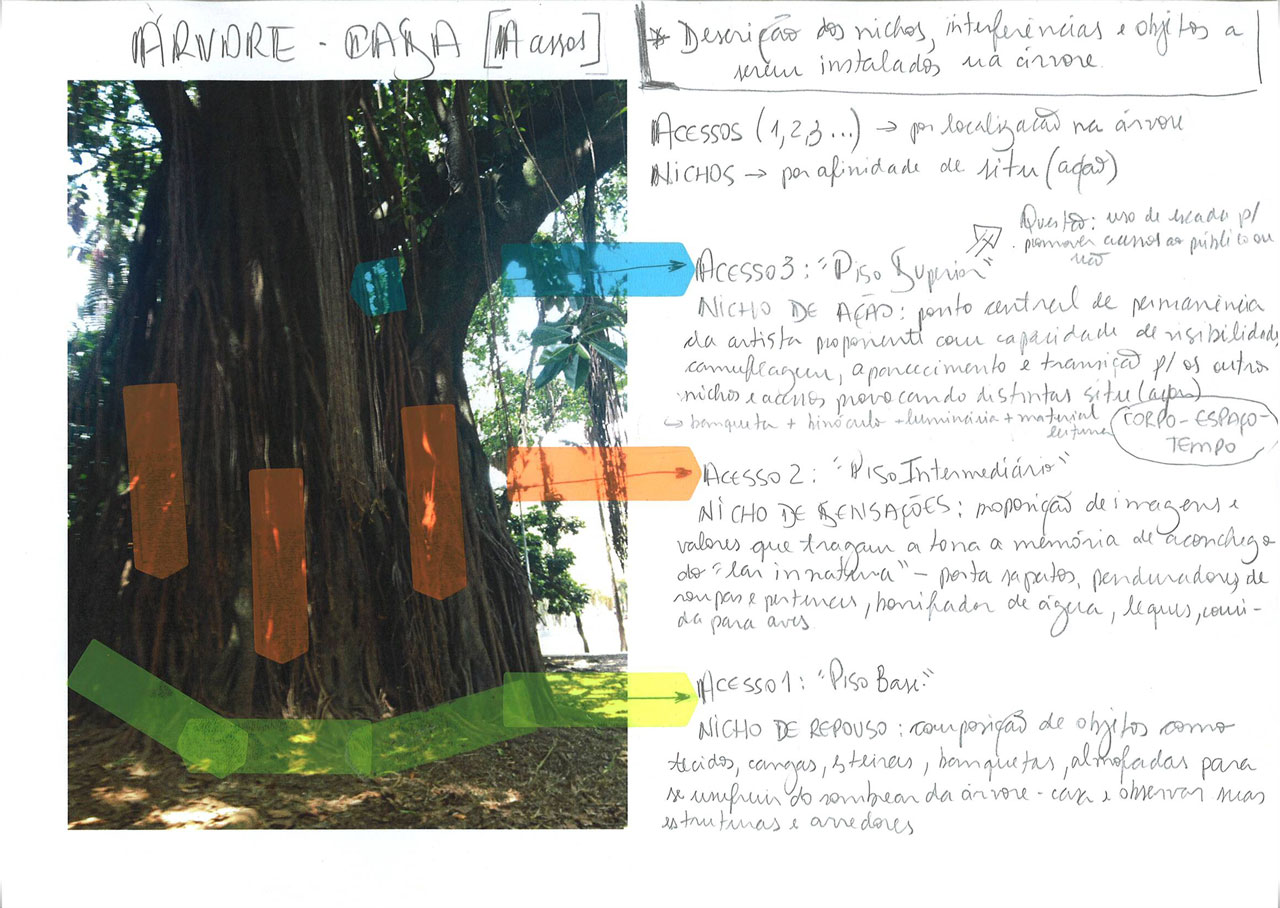 ÁRVORE - CASA [Acessos]
* Descrição dos nichos, interferências e objetos a
serem instalados na árvore.
ACESSOS (1,2,3...) → por localização na árvore
NICHOS → por afinidade de situ(ação)
Questão: uso de escada p/
promover acessos ao público ou
não
ACESSO 3: "Piso Superior"
NICHO DE AÇÃO: ponto central de permanência
da artista proponente com capacidade de visibilidade,
camuflagem, aparecimento e transição p/ os outros
nichos e acessos provocando distintas situ(ações)
↳ banqueta + binóculo + luminária + material
leitura
CORPO-ESPAÇO-
TEMPO
ACESSO 2: "Piso Intermediário"
NICHO DE SENSAÇÕES: proposição de imagens e
valores que tragam a tona a memória de aconchego
do "lar in natura" – porta sapatos, penduradores de
roupas e pertences, borrifador de água, leques, comi-
da para aves.
ACESSO 1: "Piso Base"
NICHO DE REPOUSO: composição de objetos como
tecidos, cangas, esteiras, banquetas, almofadas para
se usufruir do sombrear da árvore-casa e observar suas
estruturas e arredores